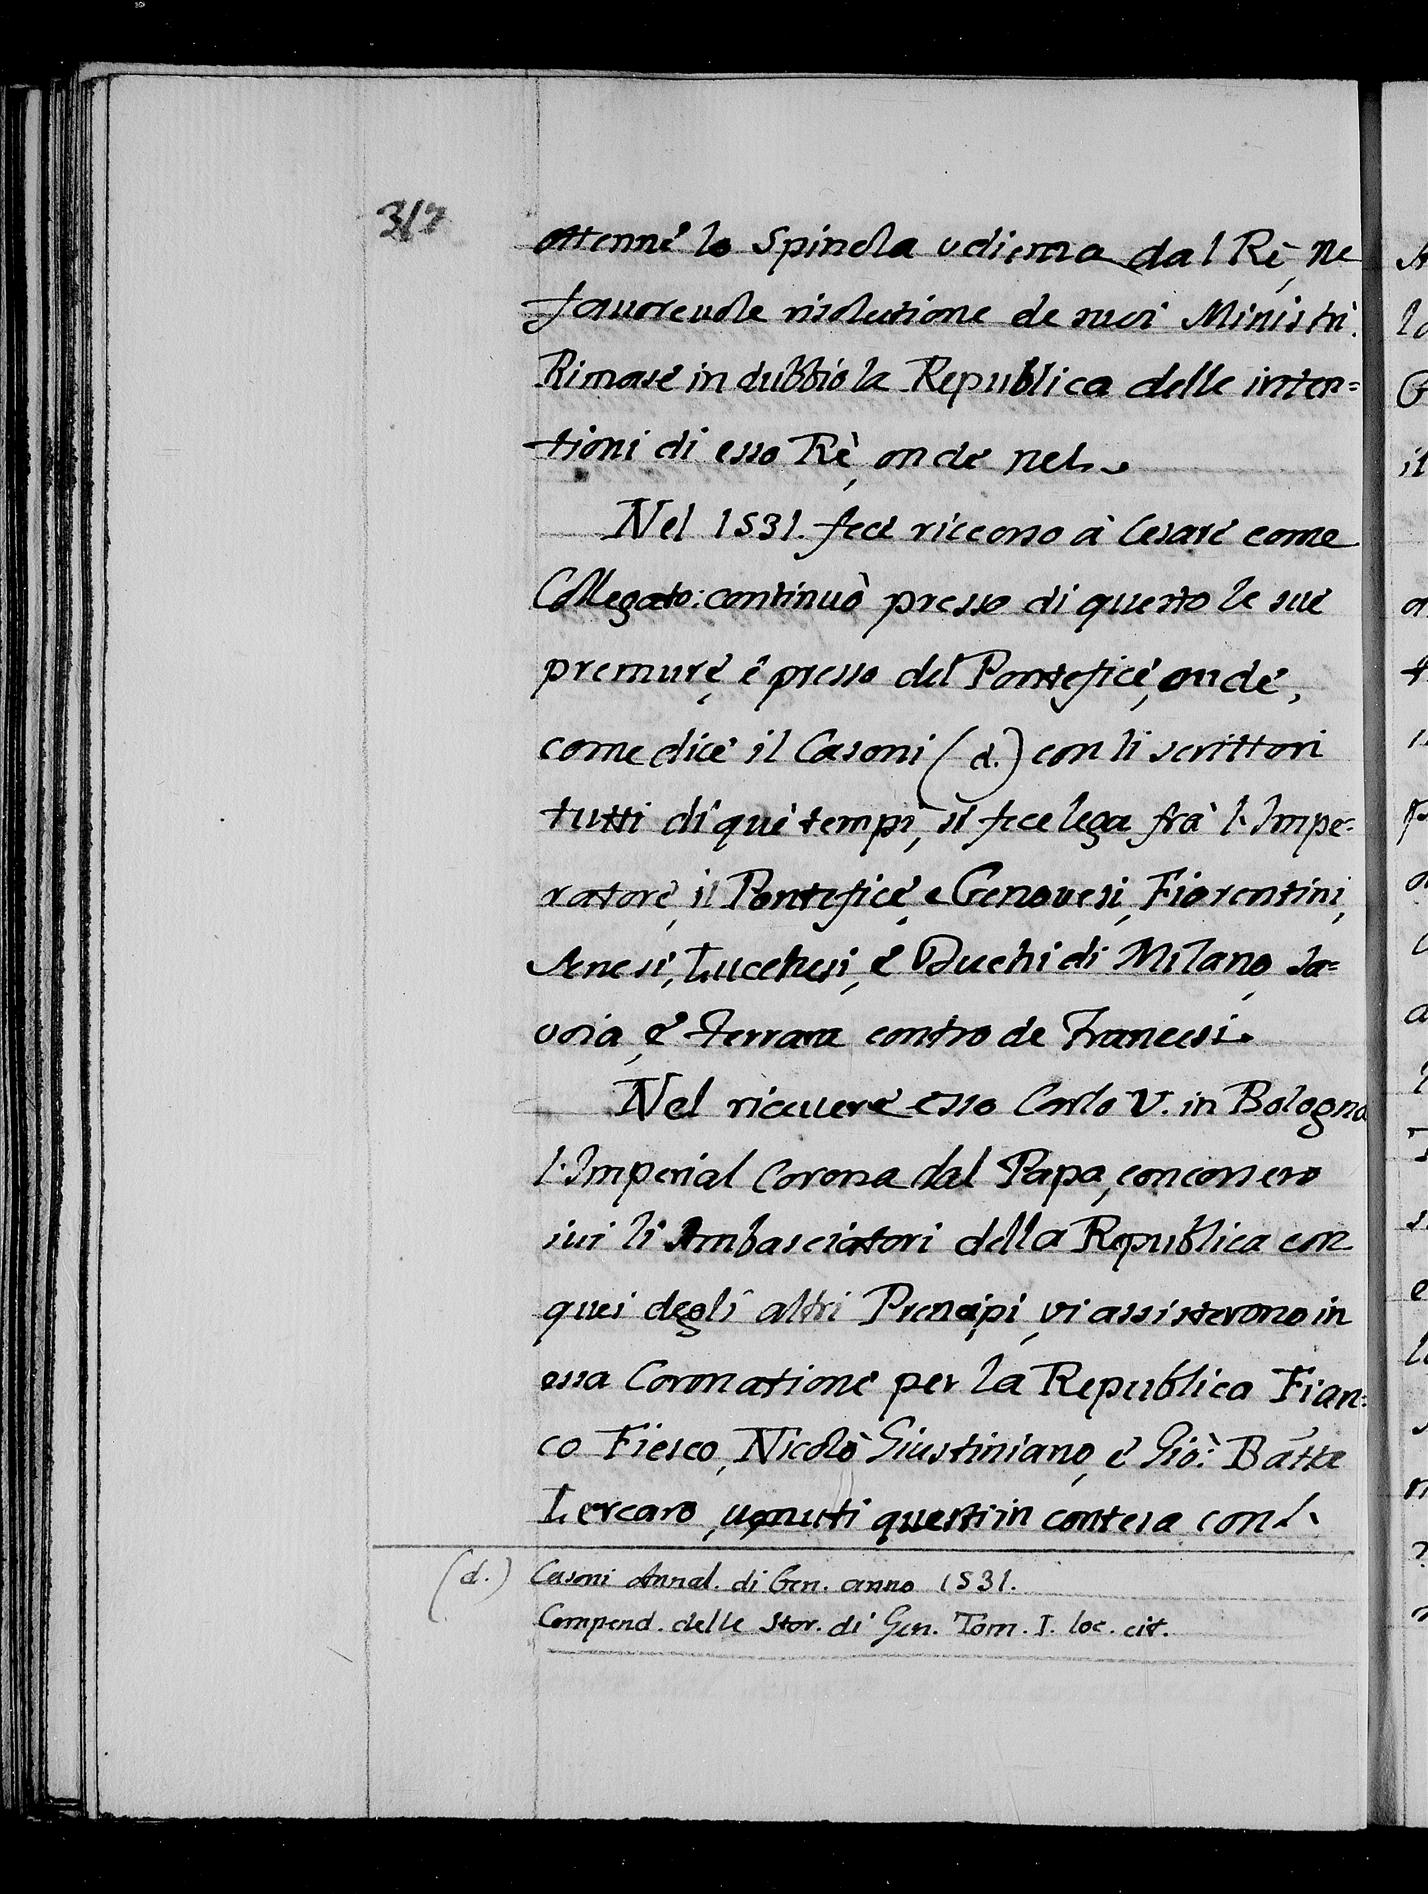 317
ottenne lo Spinola udienza dal Rè, ne
fauoreuole risolutione de suoi Ministri.
Rimase in dubbio la Republica delle inten=
tioni di esso Rè, onde nel
Nel 1531. fece ricorso à Cesare come
Collegato: continuò presso di questo le sue
premure, e presso del Pontefice, onde,
come dice il Casoni (d.) con li scrittori
tutti di que tempi, si fece lega frà l'Impe=
ratore, il Pontefice, e Genouesi, Fiorentini,
Senesi, Lucchesi, e Duchi di Milano, Sa=
uoia, e Ferrara contro de Francesi.
Nel riceuere esso Carlo V. in Bologna
l'Imperial Corona dal Papa, concorsero
iui li Ambasciatori della Republica con
quei degli altri Prencipi, vi assisterono in
essa Coronatione per la Republica Fran=
co Fiesco, Nicolò Giustiniano, e Gio: Batta
Lercaro, uenuti questi in contesa con l'
(d.) Casoni Annal. di Gen. anno 1531.
Compend. delle Stor. di Gen. Tom. I. loc. cit.